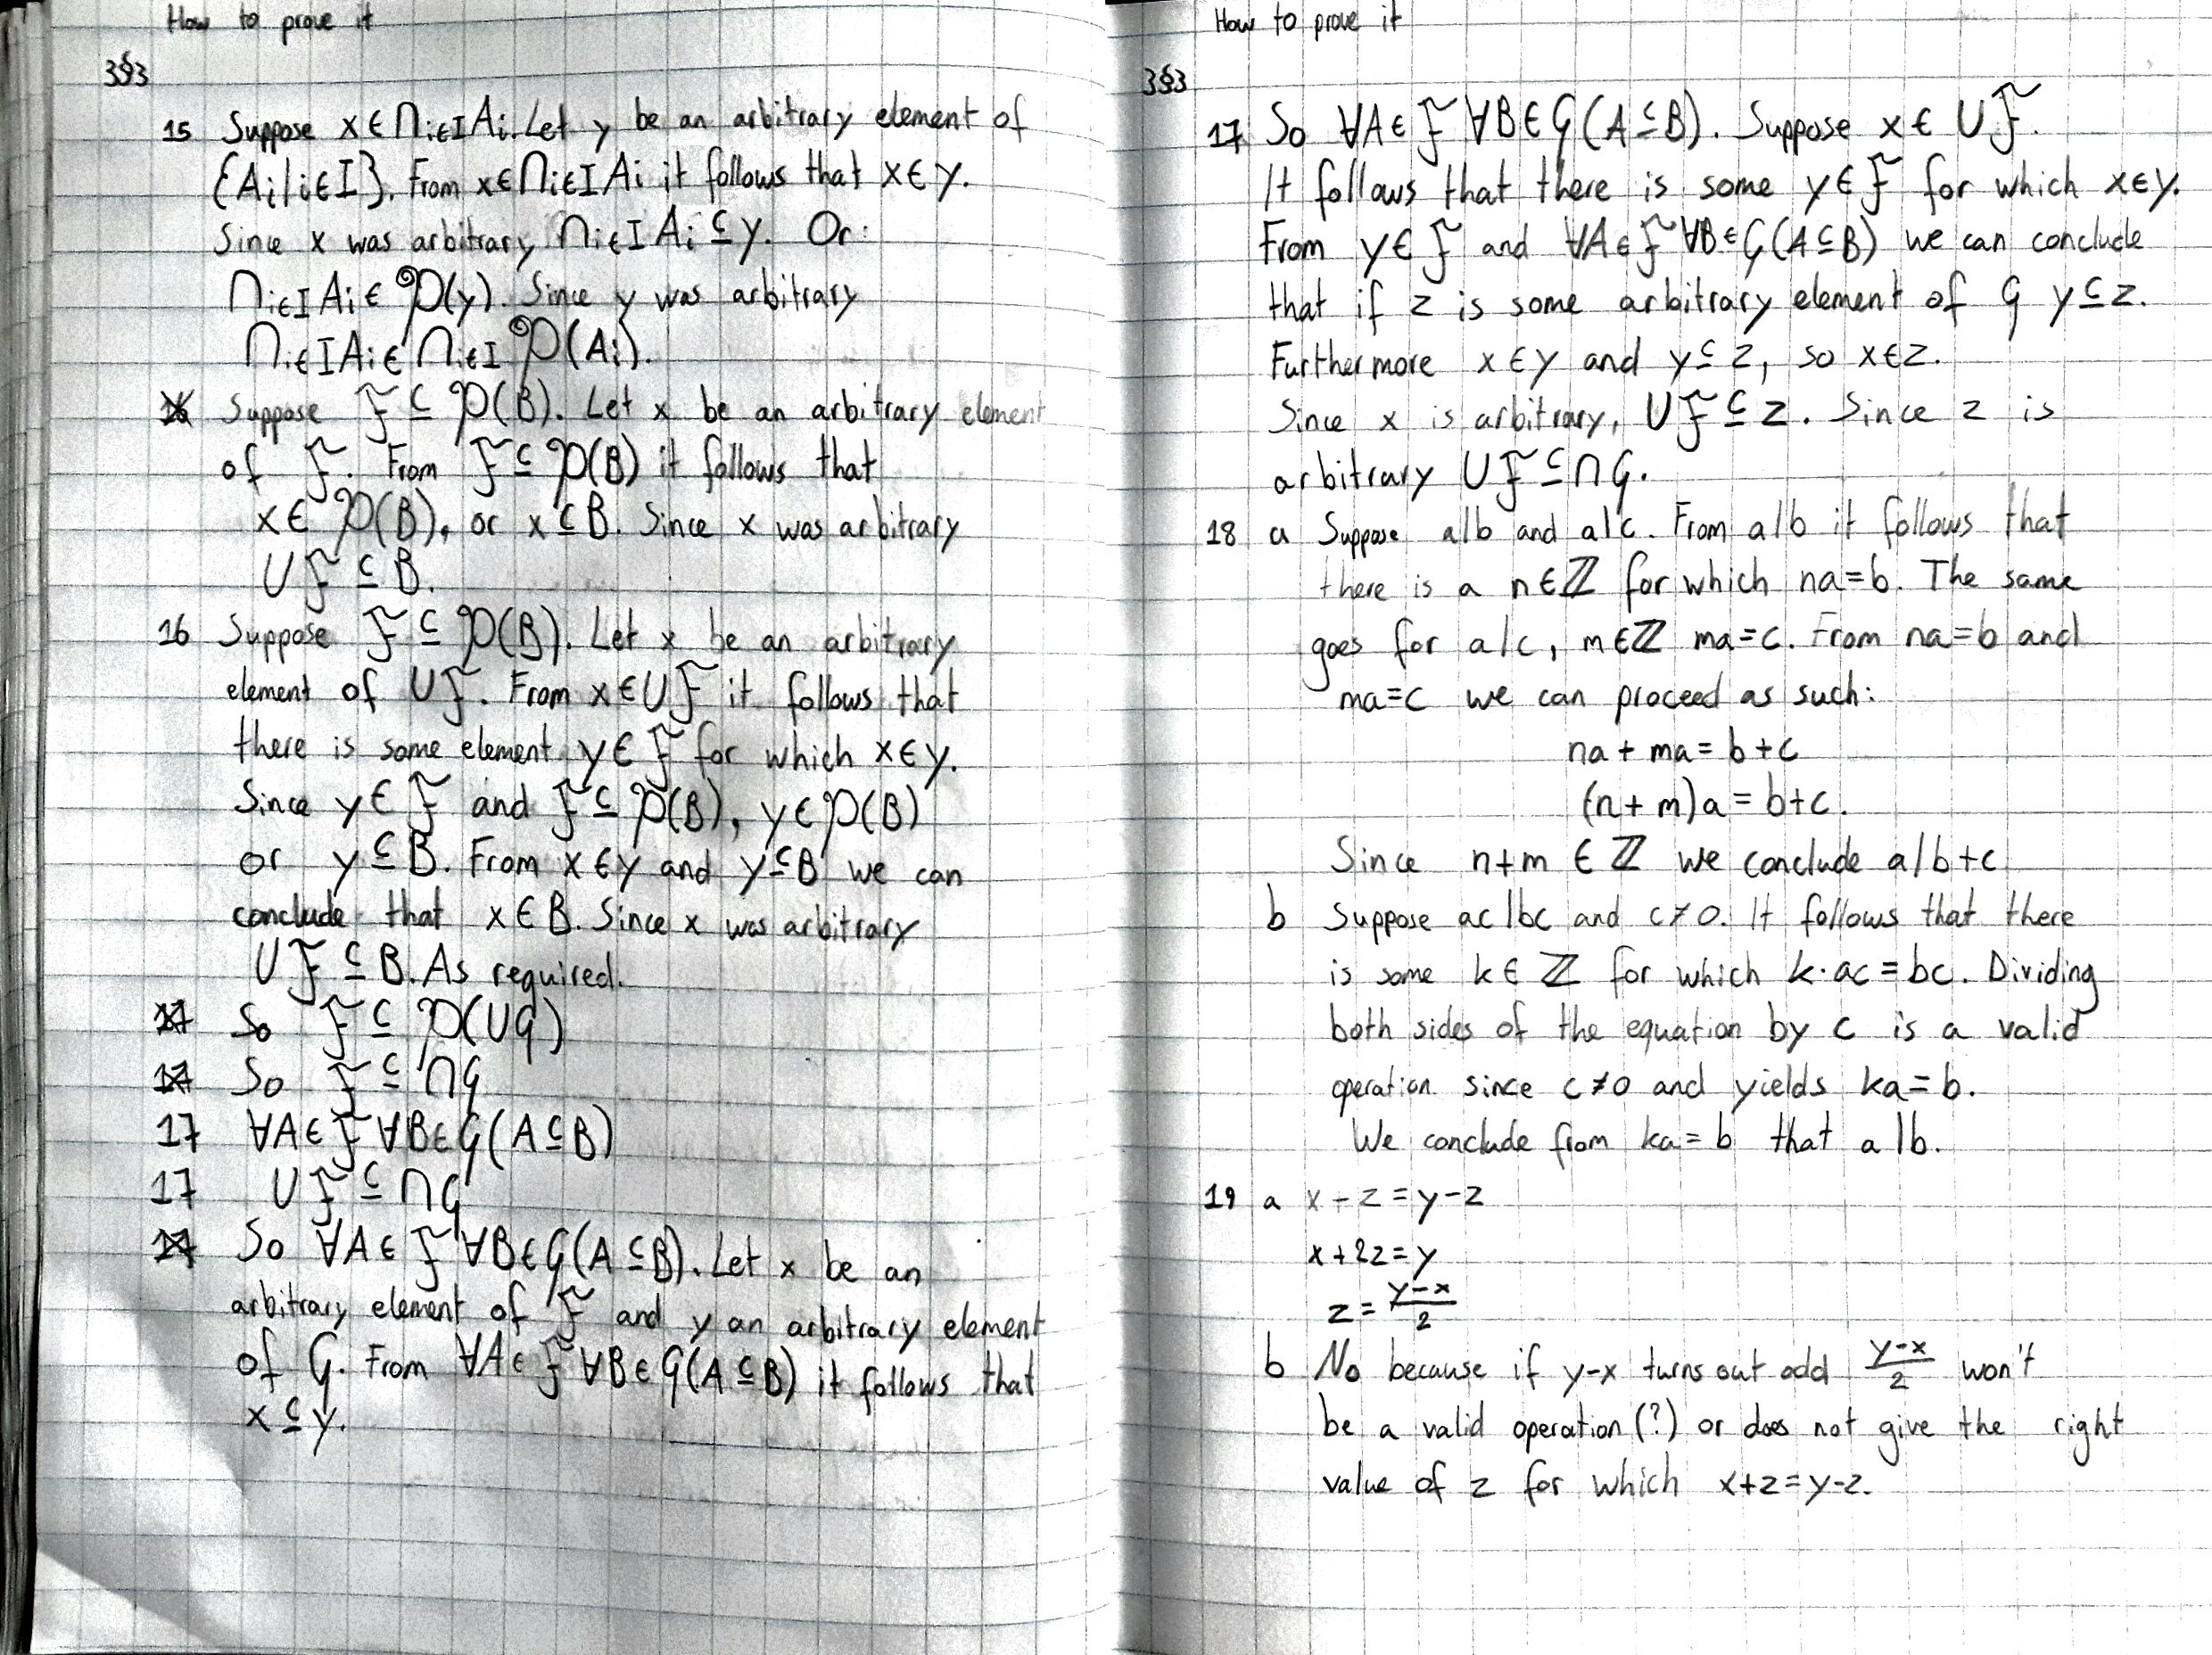 How to prove it
3§3
15 Suppose x∈∩i∈I Ai. Let y be an arbitrary element of
{Ai|i∈I}. From x∈∩i∈I Ai it follows that x∈y.
Since x was arbitrary ∩i∈I Ai ⊆ y. Or:
∩i∈I Ai ∈ 𝒫(y). Since y was arbitrary
∩i∈I Ai ∈ ∩i∈I 𝒫(Ai).
16 Suppose ℱ ⊆ 𝒫(B). Let x be an arbitrary element
of ℱ. From ℱ ⊆ 𝒫(B) it follows that
x ∈ 𝒫(B), or x ⊆ B. Since x was arbitrary
∪ℱ ⊆ B.
16 Suppose ℱ ⊆ 𝒫(B). Let x be an arbitrary
element of ∪ℱ. From x∈∪ℱ it follows that
there is some element y∈ℱ for which x∈y.
Since y∈ℱ and ℱ ⊆ 𝒫(B), y∈𝒫(B)
or y ⊆ B. From x∈y and y⊆B we can
conclude that x∈B. Since x was arbitrary
∪ℱ ⊆ B. As required.
17 So ℱ ⊆ 𝒫(∪G)
17 So ℱ ⊆ ∩G
17 ∀A∈ℱ ∀B∈G(A⊆B)
17 ∪ℱ ⊆ ∩G
17 So ∀A∈ℱ ∀B∈G(A⊆B). Let x be an
arbitrary element of ℱ and y an arbitrary element
of G. From ∀A∈ℱ ∀B∈G(A⊆B) it follows that
x ⊆ y.
How to prove it
3§3
17 So ∀A∈ℱ ∀B∈G(A⊆B). Suppose x∈∪ℱ.
It follows that there is some y∈ℱ for which x∈y.
From y∈ℱ and ∀A∈ℱ ∀B∈G(A⊆B) we can conclude
that if z is some arbitrary element of G y⊆z.
Furthermore x∈y and y⊆z, so x∈z.
Since x is arbitrary, ∪ℱ ⊆ z. Since z is
arbitrary ∪ℱ ⊆ ∩G.
18 a Suppose a|b and a|c. From a|b it follows that
there is a n∈ℤ for which na=b. The same
goes for a|c, m∈ℤ ma=c. From na=b and
ma=c we can proceed as such:
na+ma=b+c
(n+m)a=b+c.
Since n+m∈ℤ we conclude a|b+c
b Suppose ac|bc and c≠0. It follows that there
is some k∈ℤ for which k·ac=bc. Dividing
both sides of the equation by c is a valid
operation since c≠0 and yields ka=b.
We conclude from ka=b that a|b.
19 a x-z=y-z
x+2z=y
z=(y-x)/2
b No because if y-x turns out odd (y-x)/2 won't
be a valid operation (?) or does not give the right
value of z for which x+z=y-z.